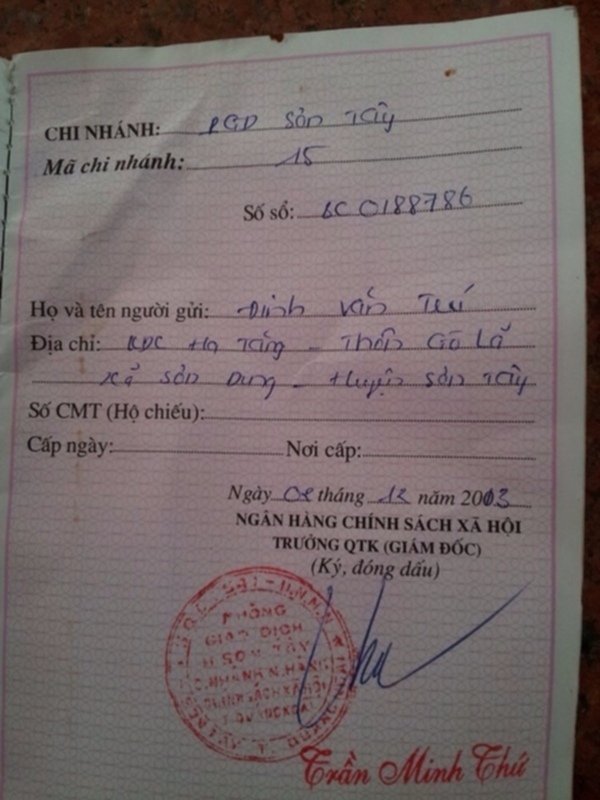 CHI NHÁNH: PGD Sơn Tây
Mã chi nhánh: 15
Số sổ: 6C 0188786
Họ và tên người gửi: Đinh Văn Trú
Địa chỉ: KDC Hà Tăng - Thôn Gò Lả
Xã Sơn Dung - Huyện Sơn Tây
Số CMT (Hộ chiếu):
Cấp ngày: Nơi cấp:
Ngày 02 tháng 12 năm 2013
NGÂN HÀNG CHÍNH SÁCH XÃ HỘI
TRƯỞNG QTK (GIÁM ĐỐC)
(Ký, đóng dấu)
PHÒNG
GIAO DỊCH
H. SƠN TÂY
C. NHÁNH N. HÀNG
CHÍNH SÁCH XÃ HỘI
Trần Minh Thứ